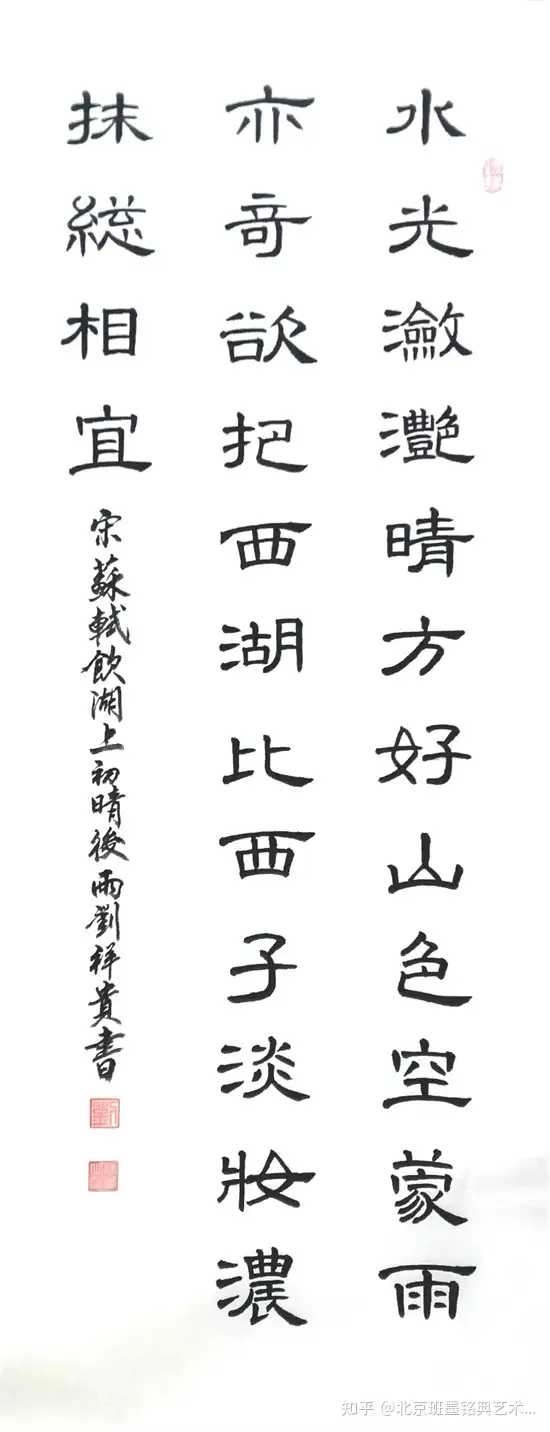 水光瀲灧晴方好山色空蒙雨
亦奇欲把西湖比西子淡妝濃
抹総相宜
宋蘇軾飲湖上初晴後雨劉祥貴書
劉
知乎 @北京班墨铭典艺术...